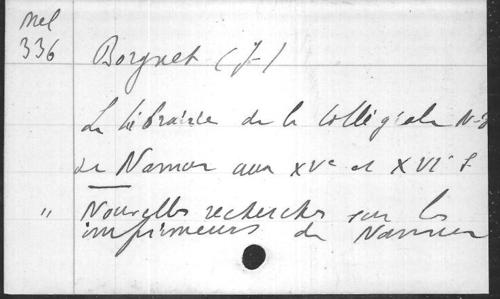 Mel
336
Borgnet (J-)
La librairie de la Collégiale N-D
de Namur aux XVe et XVIe S.
" Nouvelles recherches sur les
imprimeurs de Namur